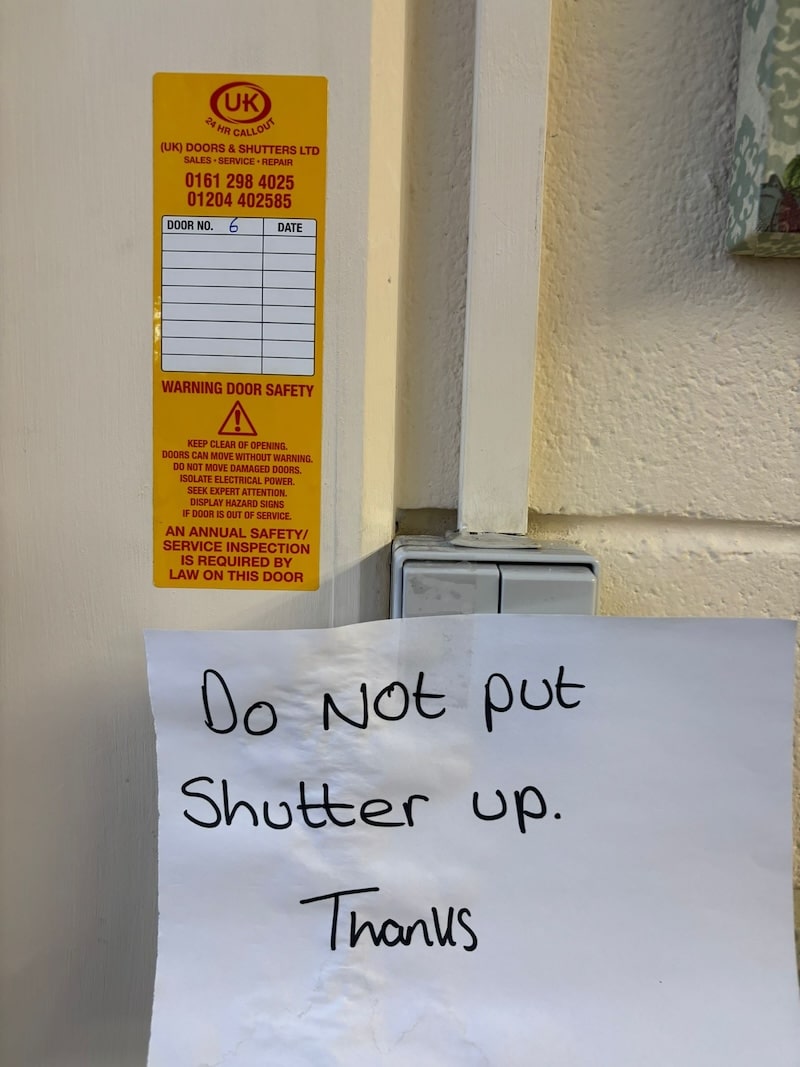 UK
24 HR CALLOUT
(UK) DOORS & SHUTTERS LTD
SALES • SERVICE • REPAIR
0161 298 4025
01204 402585
DOOR NO. 6 DATE
WARNING DOOR SAFETY
KEEP CLEAR OF OPENING.
DOORS CAN MOVE WITHOUT WARNING.
DO NOT MOVE DAMAGED DOORS.
ISOLATE ELECTRICAL POWER.
SEEK EXPERT ATTENTION.
DISPLAY HAZARD SIGNS
IF DOOR IS OUT OF SERVICE.
AN ANNUAL SAFETY/
SERVICE INSPECTION
IS REQUIRED BY
LAW ON THIS DOOR
Do NOt put
Shutter up.
Thanks